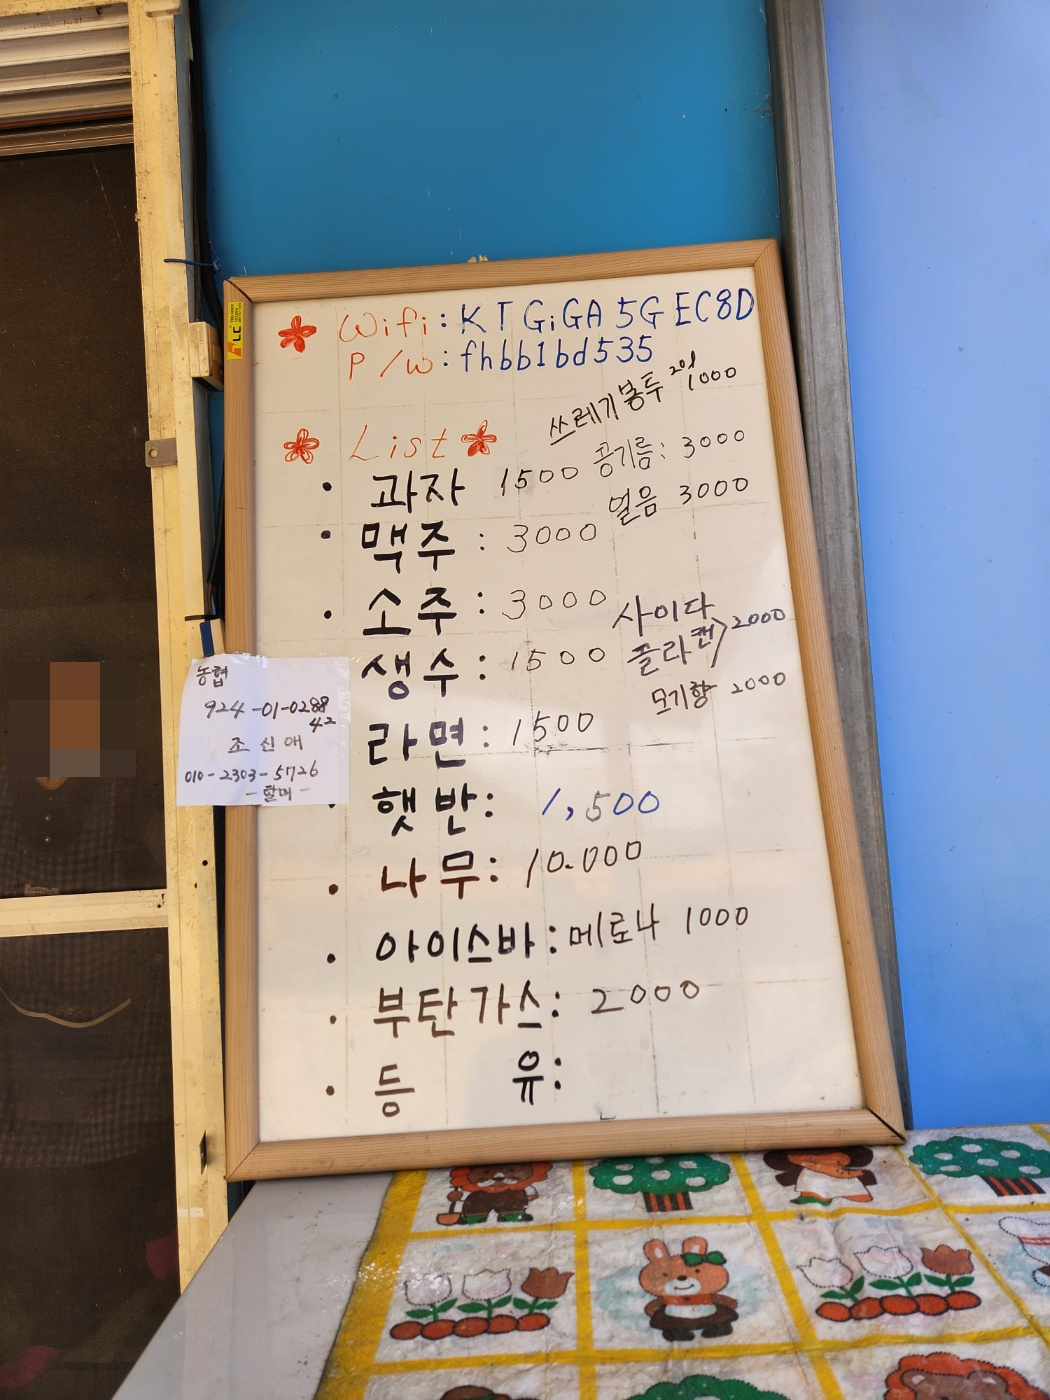 Wifi: KT GiGA 5G EC8D
P/W: fhbb1bd535
쓰레기봉투 20l 1000
List
공기름: 3000
과자 1500
얼음 3000
맥주: 3000
소주: 3000
사이다
콜라 캔 2000
생수: 1500
모기향 2000
라면: 1500
햇반: 1,500
나무: 10.000
아이스바: 메로나 1000
부탄가스: 2000
등 유:
농협
924-01-0288
42
조신애
010-2303-5726
-할머-
LC